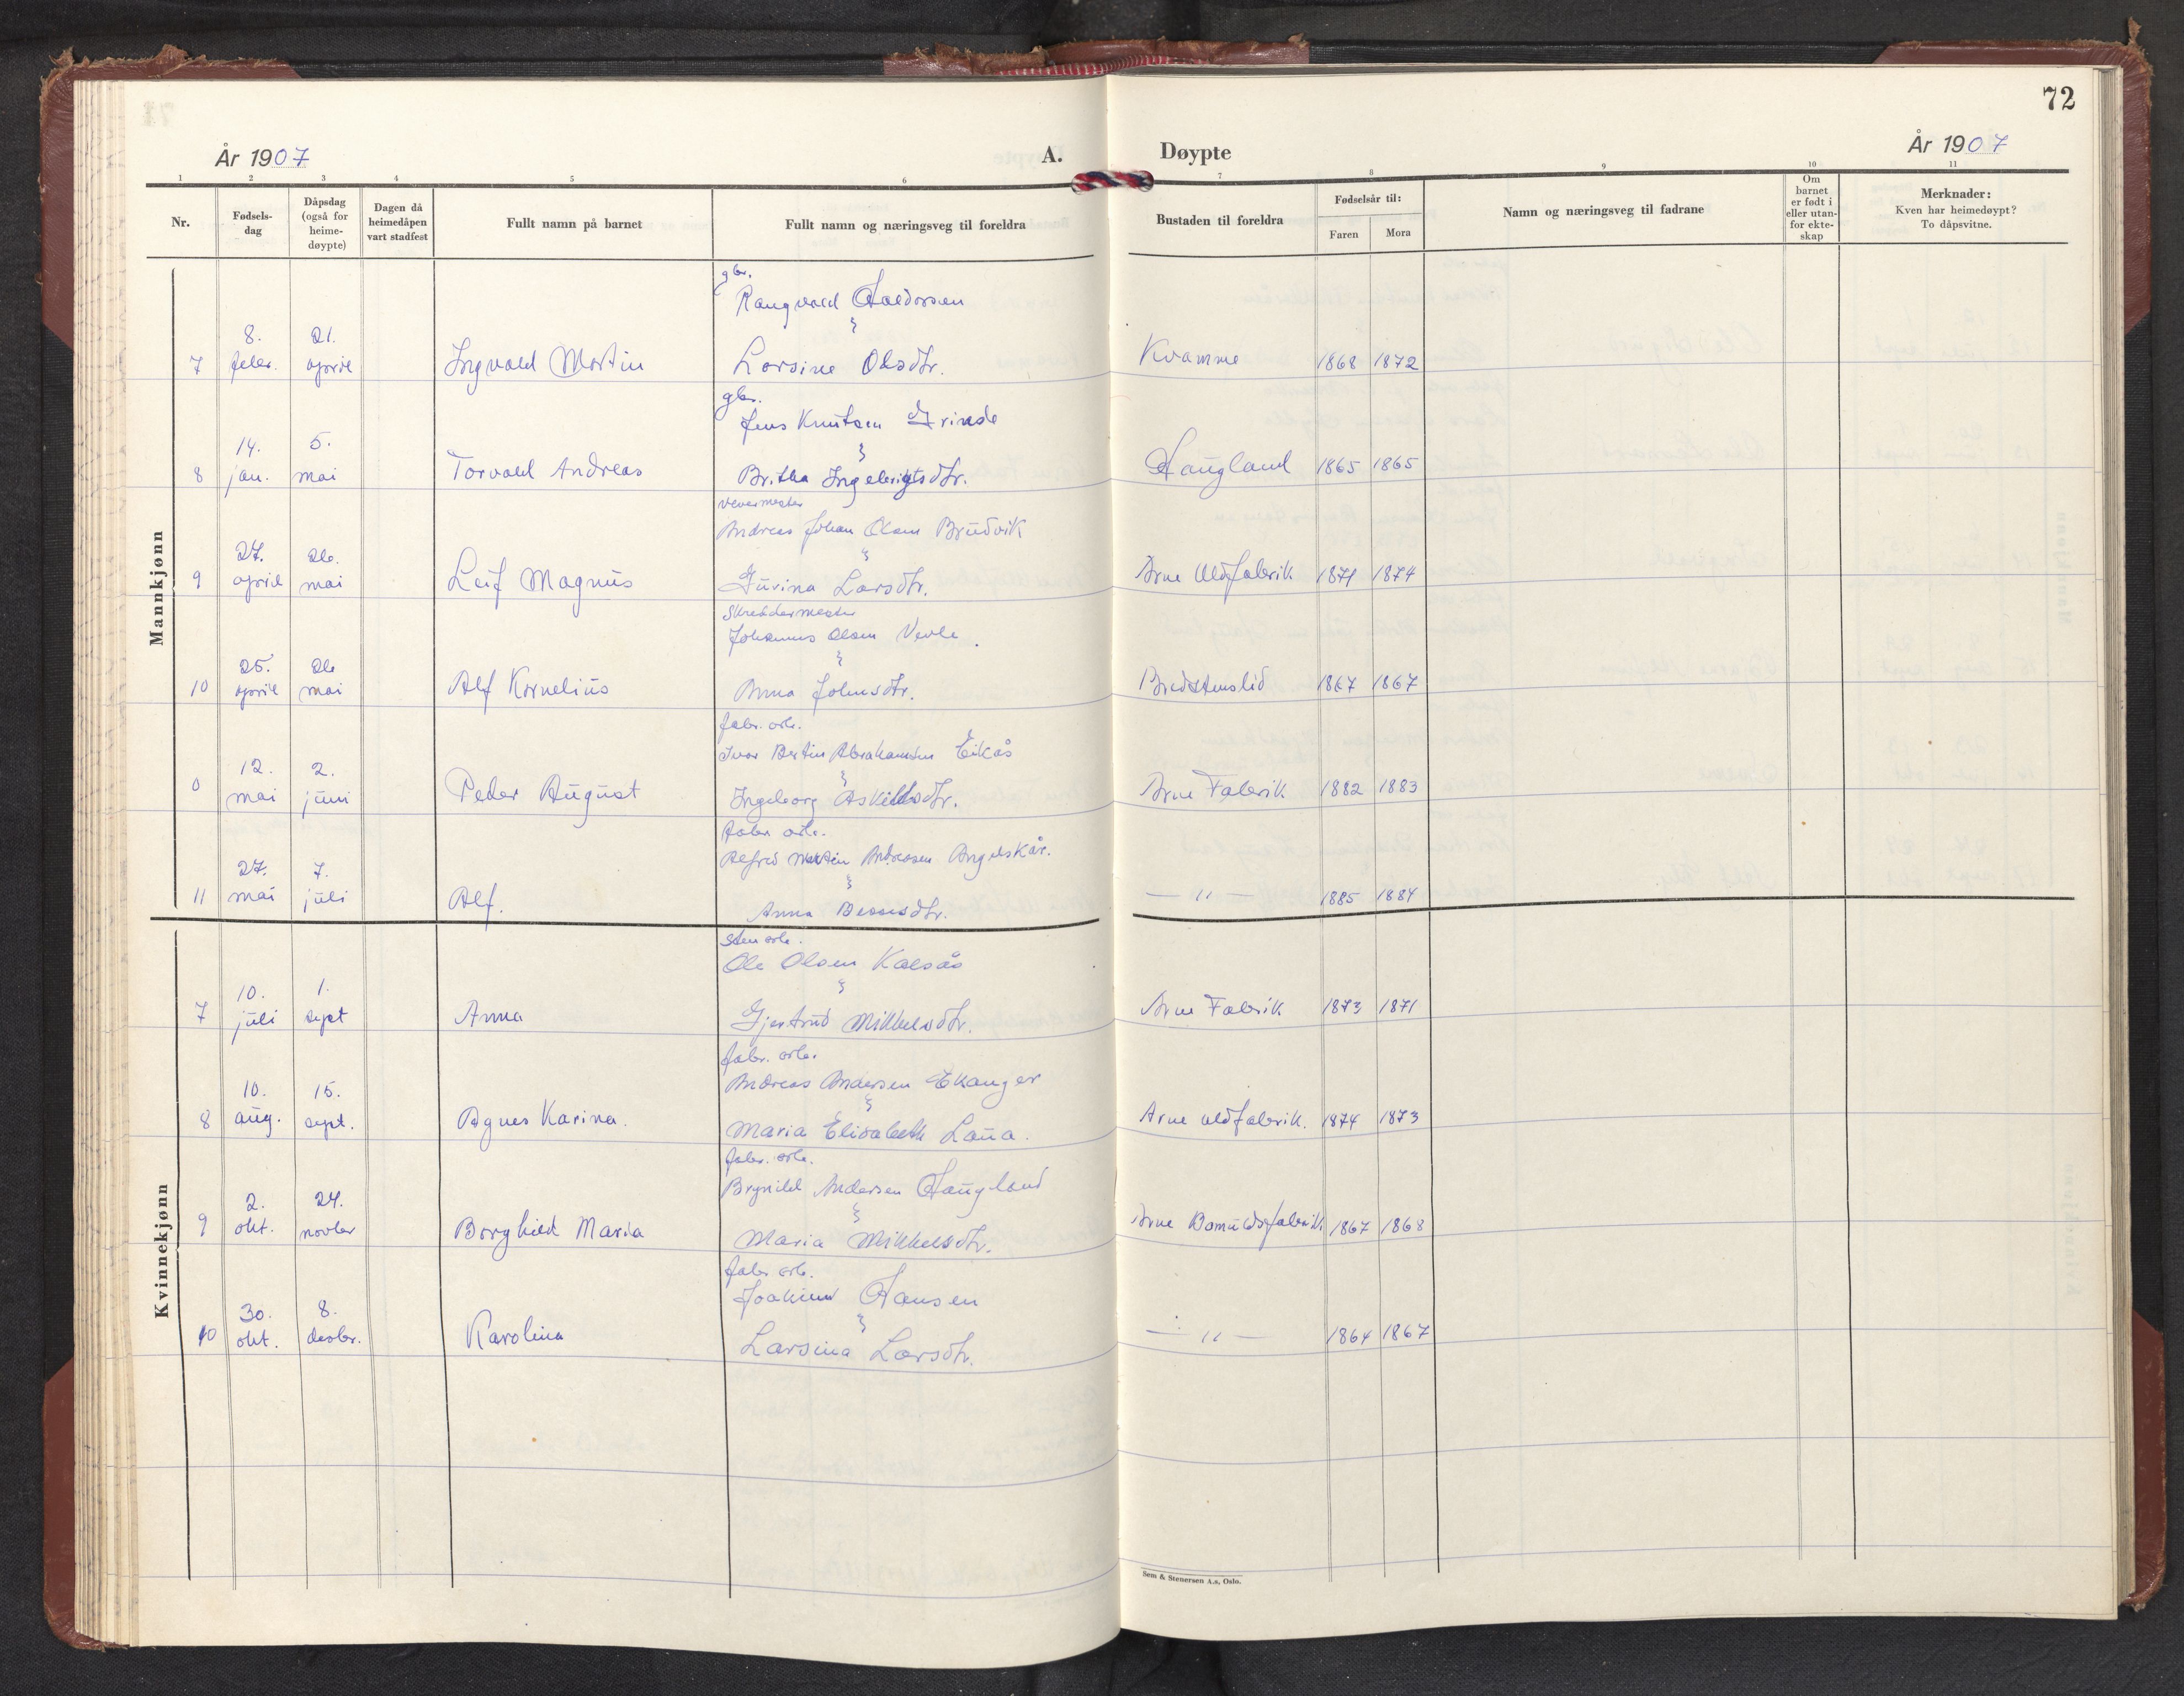 72
År 1907
A.
Døypte
År 1907
1 2 3 4 5 6 7 8 9 10 11
Nr.
Fødsels-
dag
Dåpsdag
(også for
heime-
døypte)
Dagen då
heimedåpen
vart stadfest
Fullt namn på barnet
Fullt namn og næringsveg til foreldra
Bustaden til foreldra
Fødselsår til:
Faren Mora
Namn og næringsveg til fadrane
Om
barnet
er født i
eller utan-
for ekte-
skap
Merknader:
Kven har heimedøypt?
To dåpsvitne.
Mannkjønn
gbr.
Rangvald Haldorsen
8. 21.
7 febr. april Ingvald Martin Larsine Olsdtr. Kvamme 1868 1872
gbr.
Jens Knutsen Grinde
14. 5.
8 jan. mai Torvald Andreas Britha Ingebrigtsdtr. Haugland 1865 1865
vevermester
Andreas Johan Olsen Brudvik
27. 26.
9 april mai Leif Magnus Gurina Larsdtr. Arne Uldfabrik 1871 1874
Skreddermester
Johannes Olsen Vevle
25. 26
10 april mai Alf Kornelius Anna Johnsdtr. Bredstenslid 1867 1867
fabr. arb.
Ivar Bertin Abrahamsen Eikås
12. 2.
0 mai juni Peder August Ingeborg Askildsdtr. Arne Fabrik 1882 1883
fabr. arb.
Alfred Martin Andreasen Angelskår.
27. 7.
11 mai juli Alf. Anna dtr. — " — 1885 1884
Kvinnekjønn
Sten arb.
Ole Olsen Kalsås
10. 1.
7 juli sept Anna Gjertrud Mikkelsdtr. Arne Fabrik 1873 1871
fabr. arb.
Andreas Andersen Ekanger
10. 15.
8 aug. sept. Agnes Karina. Maria Elisabeth Laua. Arne uldfabrik. 1874 1873
fabr. arb.
Brynild Andersen Haugland
2. 24.
9 okt. novbr Borghild Maria Maria Mikkelsdtr. Arne Bomuldsfabrik 1867 1868
fabr arb.
Joakim Hansen
30. 8.
10 okt. desbr. Karolina Larsina Larsdtr. — " — 1864 1867
Sem & Stenersen A.s, Oslo.